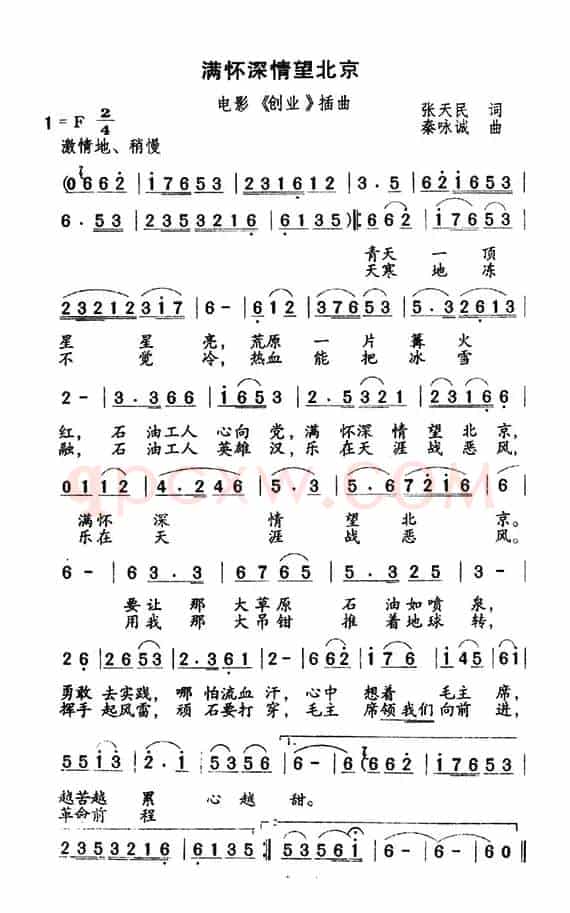 满怀深情望北京
电影《创业》插曲
张天民 词
1=F 2/4
秦咏诚 曲
激情地、稍慢
(0662̇ | 1̇7653 | 231612 | 3·5 | 621̇653 |
6·53 | 2353216 | 6135):‖ 662̇ | 1̇7653 |
青天 一 顶
天寒 地 冻
23212317 | 6- | 612 | 37653 | 5·32613 |
星 星 亮,荒原 一 片 篝 火
不 觉 冷,热血 能 把 冰 雪
2- | 3·366 | 1̇653 | 2·5321 | 23166 |
红,石 油工人 心向 党,满 怀深 情 望北 京,
融,石 油工人 英雄 汉,乐 在天 涯 战恶 风,
0112 | 4·246 | 5·3 | 5·672̇1̇6 | 6 |
满怀 深 情 望 北 京。
乐在 天 涯 战 恶 风。
6- | 63·3 | 6765 | 5·325 | 3- |
要让 那 大草原 石 油如喷 泉,
用我 那 大吊钳 推 着地球 转,
26 | 2653 | 2·361 | 2- | 662̇ | 1̇76 | 1̇45 | 61̇ |
勇敢 去实践,哪 怕流血 汗,心中 想着 毛主 席,
挥手 起风雷,顽 石要打 穿,毛主 席领我们 向前 进,
551̇3̇ | 2̇·1̇ | 535235 | 6- | 6- | 662̇ | 1̇7653 |
1.
越苦越 累 心 越 甜。
革命前 程
2353216 | 6135 :‖ 53561̇ | 6- | 6- | 60 ‖
qpcxw.COM